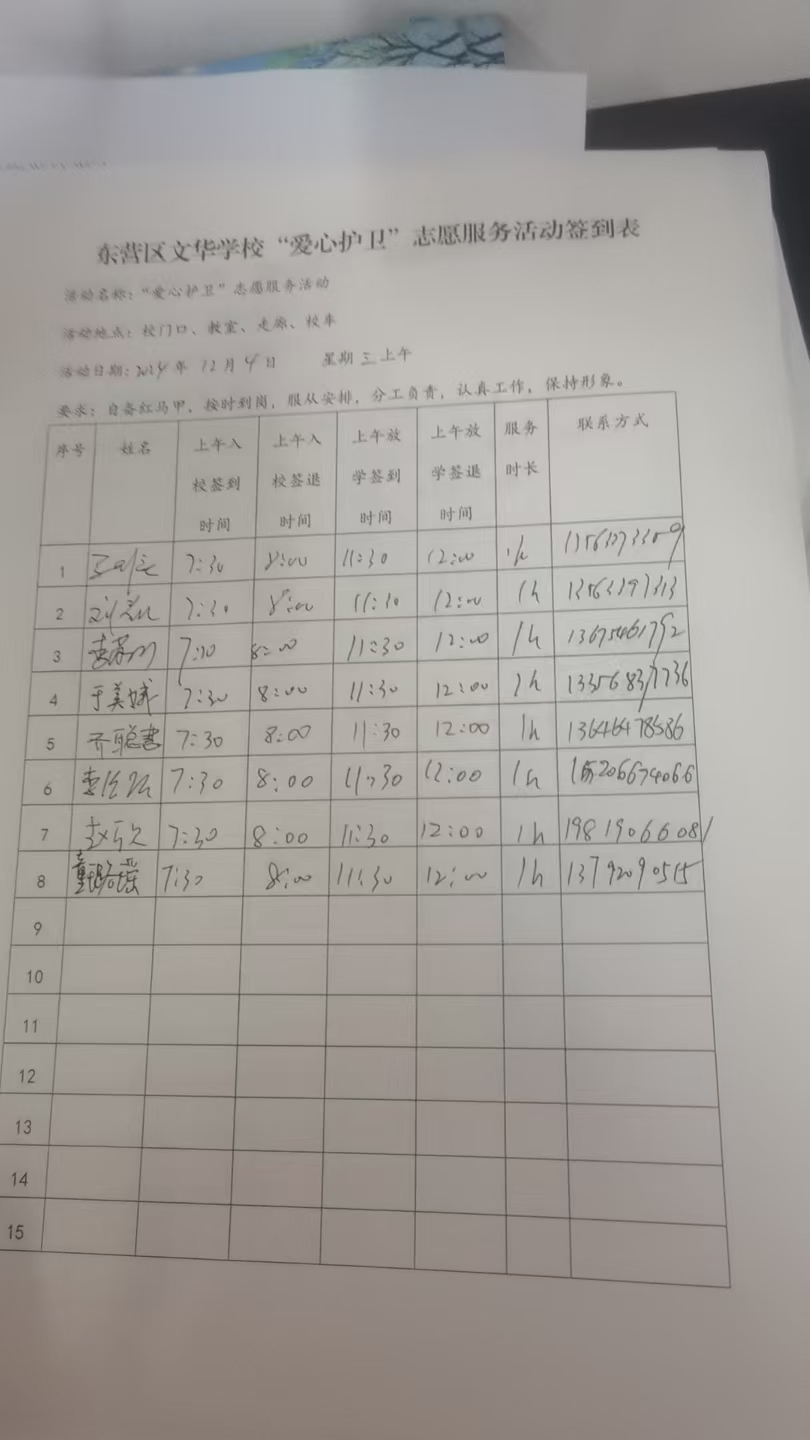 东营区文华学校“爱心护卫”志愿服务活动签到表
活动名称：“爱心护卫”志愿服务活动
活动地点：校门口、教室、走廊、校车
活动日期：2024年 12月 4日 星期三上午
要求：自备红马甲，按时到岗，服从安排，分工负责，认真工作，保持形象。
序号 姓名 上午入校签到时间 上午入校签退时间 上午放学签到时间 上午放学签退时间 服务时长 联系方式
1 7:30 8:00 11:30 12:00 1h
2 7:30 8:00 11:30 12:00 1h
3 7:30 8:00 11:30 12:00 1h 13675461792
4 于美娥 7:30 8:00 11:30 12:00 1h 13356837736
5 齐聪慧 7:30 8:00 11:30 12:00 1h 13646478586
6 7:30 8:00 11:30 12:00 1h 15206674066
7 7:30 8:00 11:30 12:00 1h 19819066081
8 董璐瑶 7:30 8:00 11:30 12:00 1h 13792090515
9
10
11
12
13
14
15